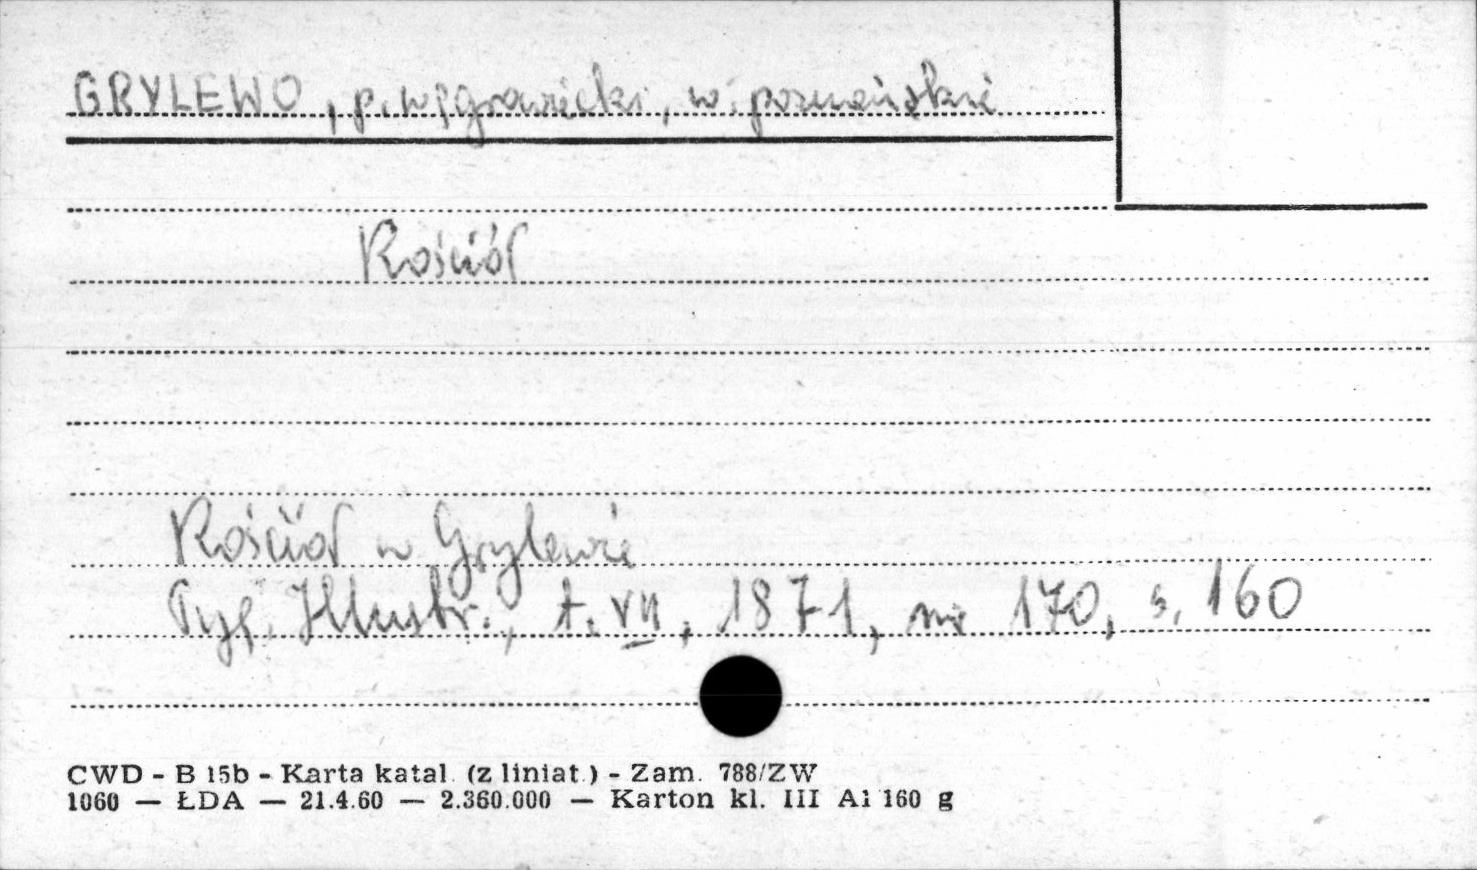 GRYLEWO, p. wągrowiecki, w. poznańskie
Kościół
Kościół w Grylewie
Tyg. Illustr., t. VII, 1871, nr 170, s. 160
CWD - B 15b - Karta katal. (z liniat.) - Zam. 788/ZW
1060 — ŁDA — 21.4.60 — 2.360.000 — Karton kl. III A1 160 g